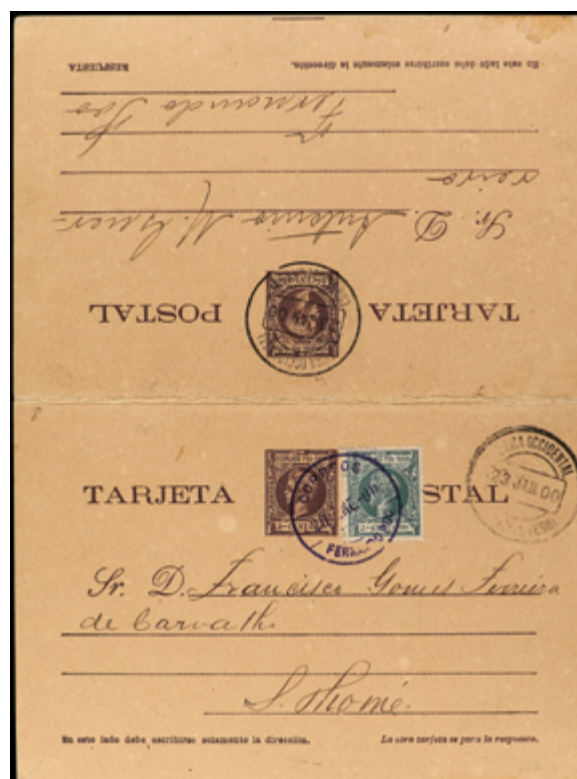 RESPUESTA
En este lado debe escribirse solamente la dirección.
Fernando Poo
Sr. D. Antonio M.
TARJETA POSTAL
TARJETA STAL
CORREOS
FERNANDO POO
AFRICA OCCIDENTAL
23 JUL 00
Sr. D. Francisco Gomes Ferreira
de Carvalho
S. Thomé.
En este lado debe escribirse solamente la dirección. La otra tarjeta es para la respuesta.